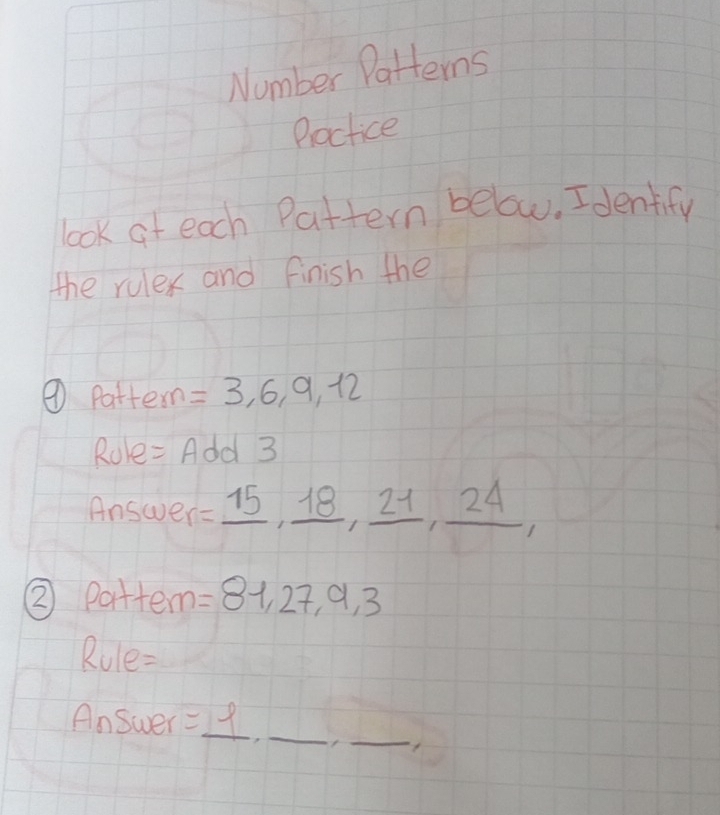 Number Patterns
Practice
look at each Pattern below. Identify
the rules and finish the
① Pattern= 3,6,9,12
Rule= Add 3
Answer= 15, 18, 21, 24,
② Pattern= 81,27,9,3
Rule=
Answer= 1, __, __,